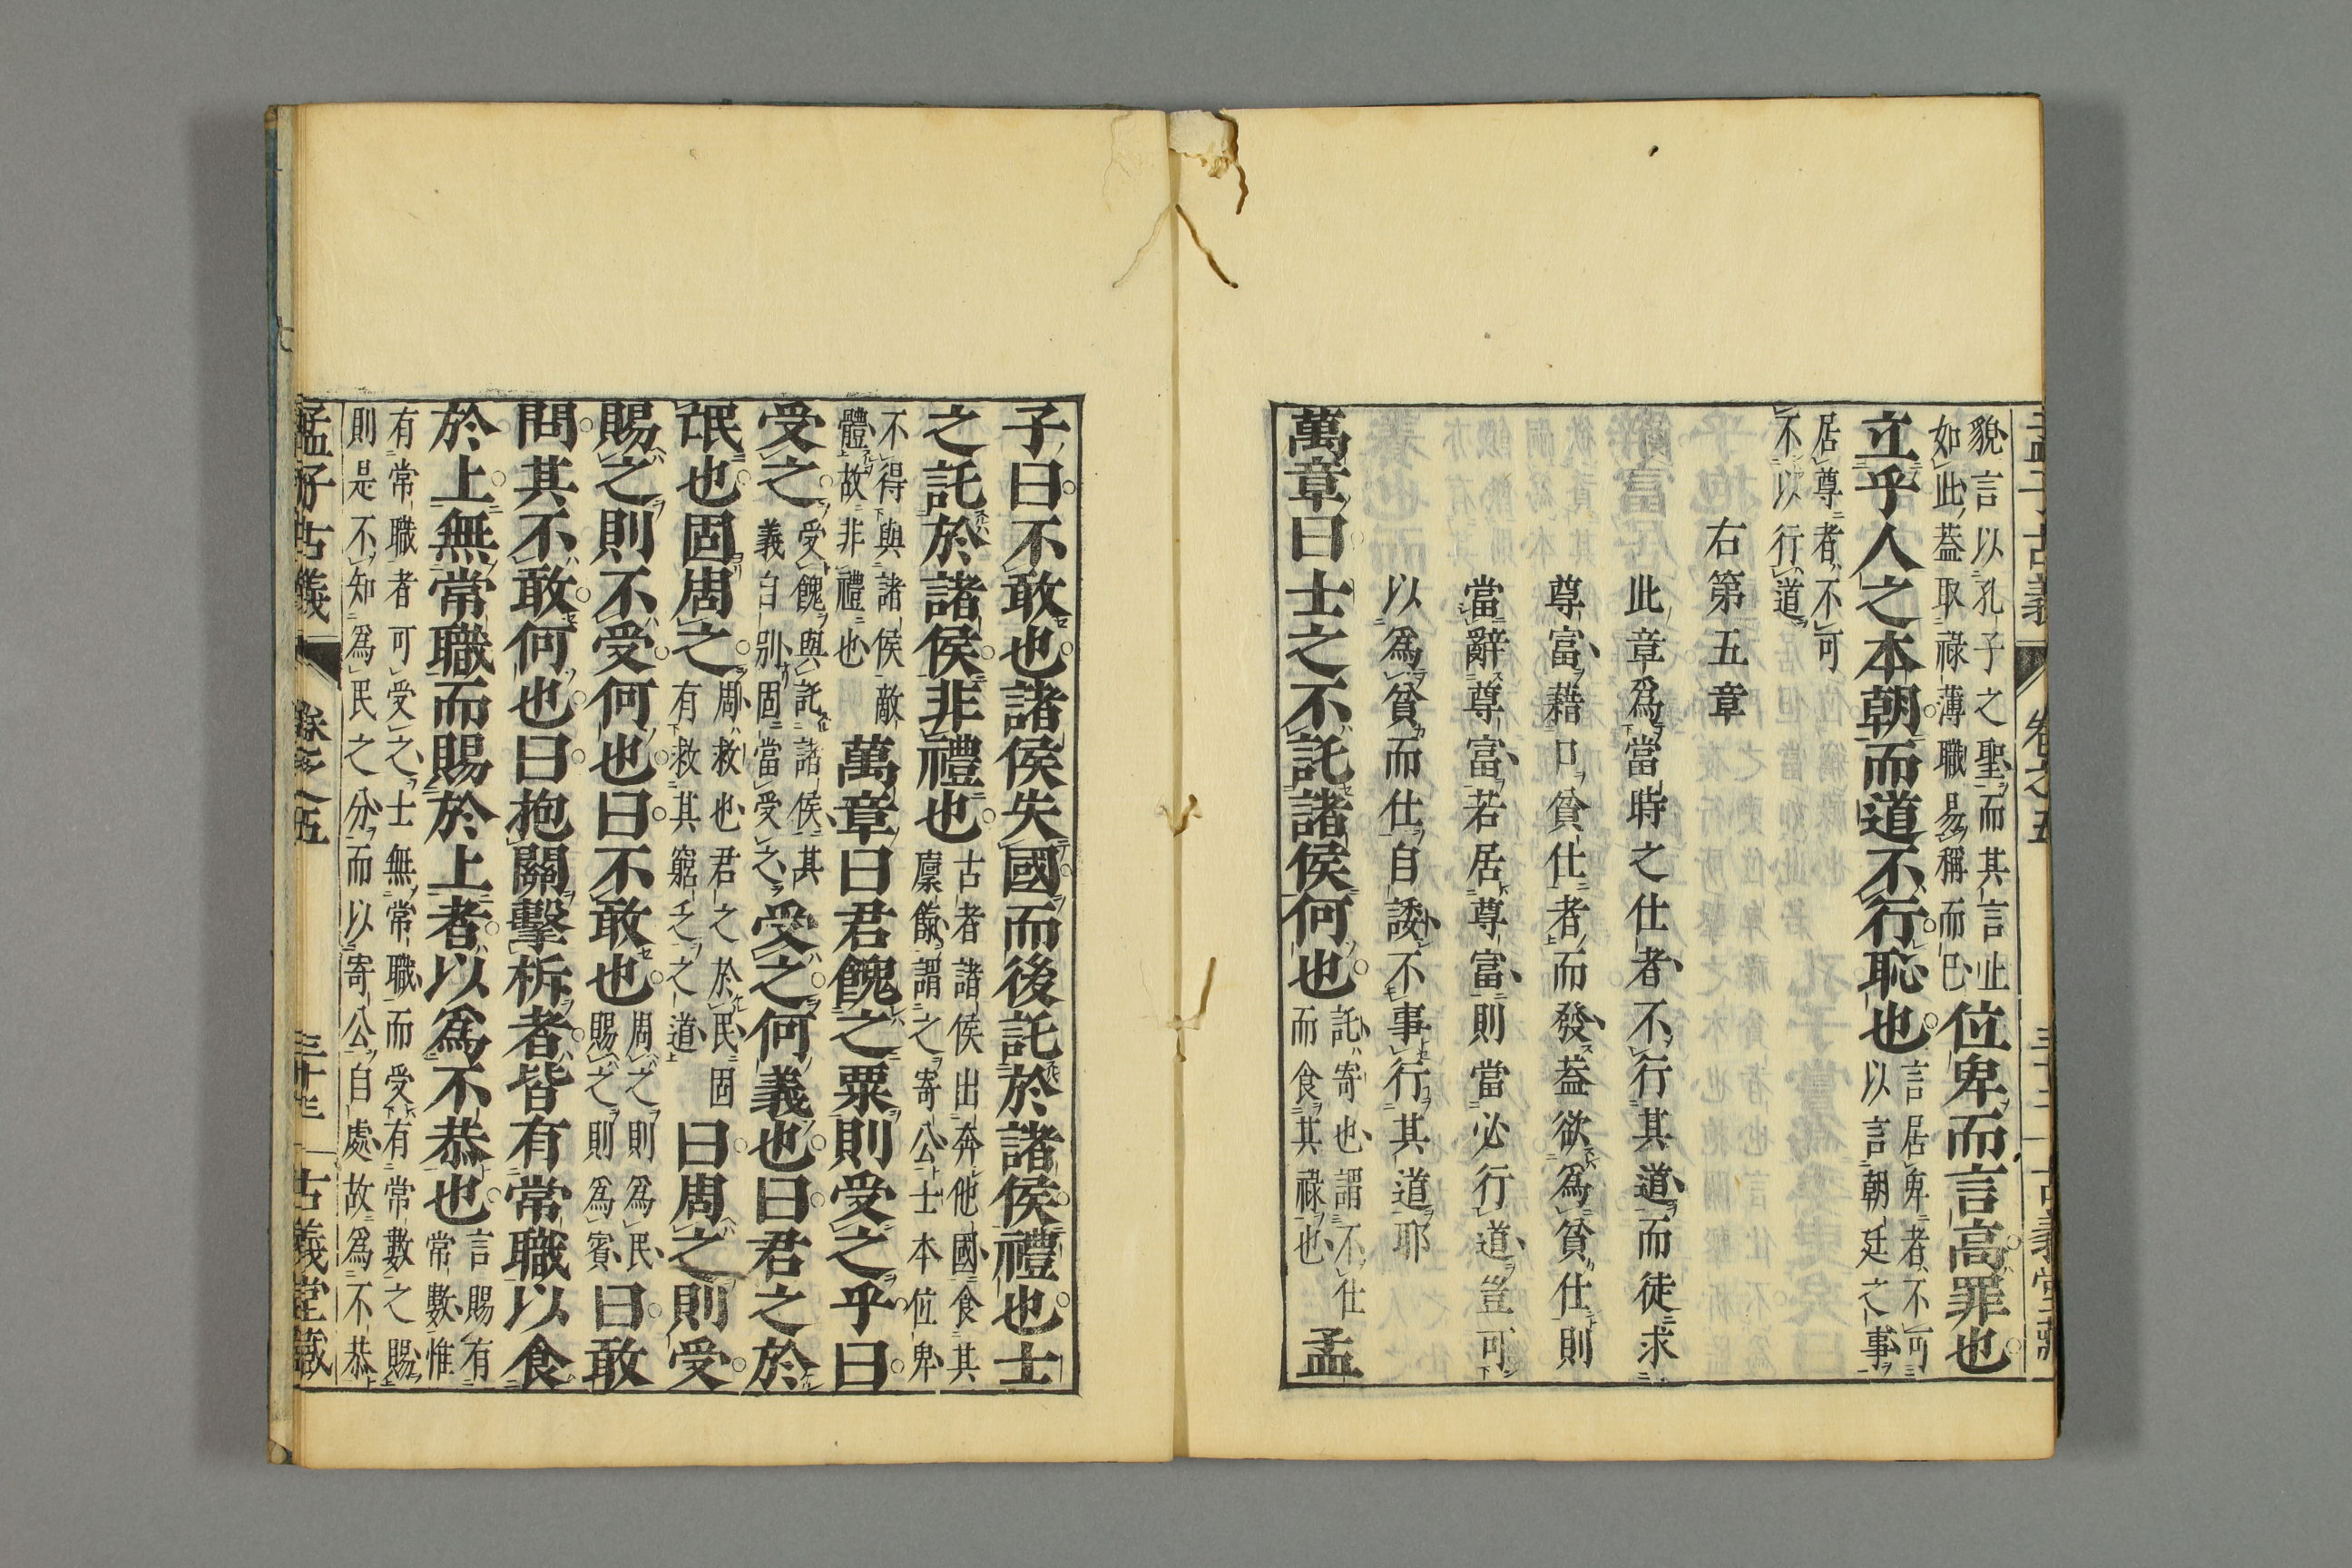 孟子古義 卷之五 古義堂藏
貌言以孔子之聖而其言止
如此蓋取祿薄職易稱而已
位卑而言高罪也
立乎人之本朝而道不行恥也
言居卑者不可
以言朝廷之事
居尊者不可
不以行道
右第五章
此章爲當時之仕者不行其道而徒求
尊富藉口貧仕者而發蓋欲爲貧仕則
當辭尊富若居尊富則當必行道豈可
以爲貧而仕自諉不事行其道耶
萬章曰士之不託諸侯何也
託寄也謂不仕
而食其祿也
孟
子曰不敢也諸侯失國而後託於諸侯禮也士
之託於諸侯非禮也
古者諸侯出奔他國食其
廩餼謂之寄公士本位卑
不得與諸侯敵
體故非禮也
萬章曰君餽之粟則受之乎曰
受之
受餽與託諸侯其
義自別固當受之
受之何義也曰君之於
氓也固周之
周救也君之於民固
有救其窮乏之道
曰周之則受
賜之則不受何也曰不敢也
周之則爲民
賜之則爲賓
曰敢
問其不敢何也曰抱關擊柝者皆有常職以食
於上無常職而賜於上者以爲不恭也
言賜有
常數惟
有常職者可受之士無常職而受有常數之賜
則是不知爲民之分而以寄公自處故爲不恭
孟子古義 卷之五 三十三 古義堂藏